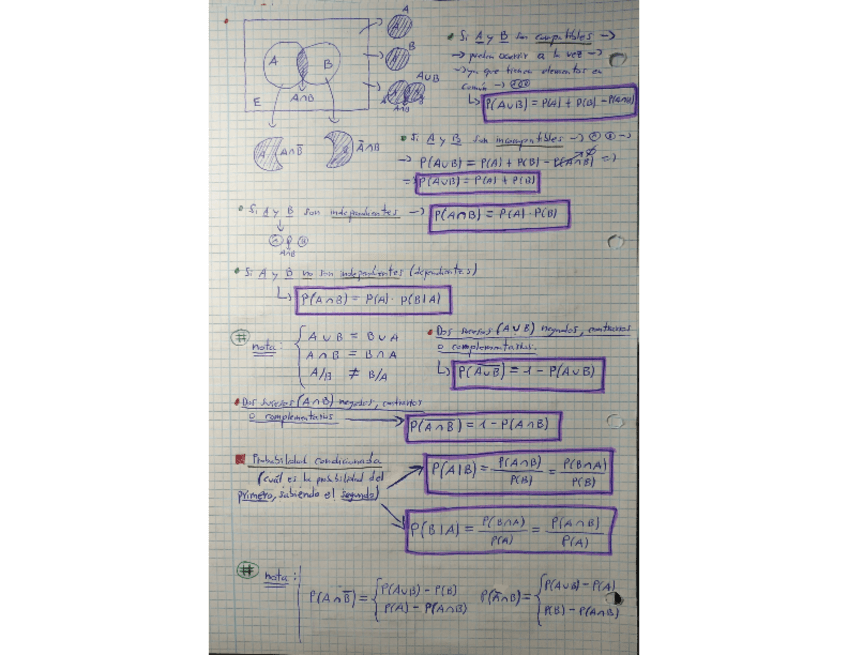 A
B
A∪B
A
B
E
A∩B
A∩B
A
A∩B̅
B
A̅∩B
• Si A y B son compatibles →
→ pueden ocurrir a la vez →
→ ya que tienen elementos en
común →
↳ P(A∪B) = P(A) + P(B) - P(A∩B)
• Si A y B son incompatibles → Ⓐ Ⓑ →
→ P(A∪B) = P(A) + P(B) - P(A∩B) ⇒
⇒ P(A∪B) = P(A) + P(B)
• Si A y B son independientes → P(A∩B) = P(A) · P(B)
A∩B
• Si A y B no son independientes (dependientes)
↳ P(A∩B) = P(A) · P(B|A)
# nota:
A∪B = B∪A
A∩B = B∩A
A/B ≠ B/A
• Dos sucesos (A∪B) negados, contrarios
o complementarios.
↳ P(A̅∪̅B̅) = 1 - P(A∪B)
• Dos sucesos (A∩B) negados, contrarios
o complementarios → P(A̅∩̅B̅) = 1 - P(A∩B)
Probabilidad condicionada
(cuál es la probabilidad del
primero, sabiendo el segundo)
P(A|B) = P(A∩B)/P(B) = P(B∩A)/P(B)
P(B|A) = P(B∩A)/P(A) = P(A∩B)/P(A)
# nota:
P(A∩B̅) = { P(A∪B) - P(B)
P(A) - P(A∩B)
P(A̅∩B) = { P(A∪B) - P(A)
P(B) - P(A∩B)